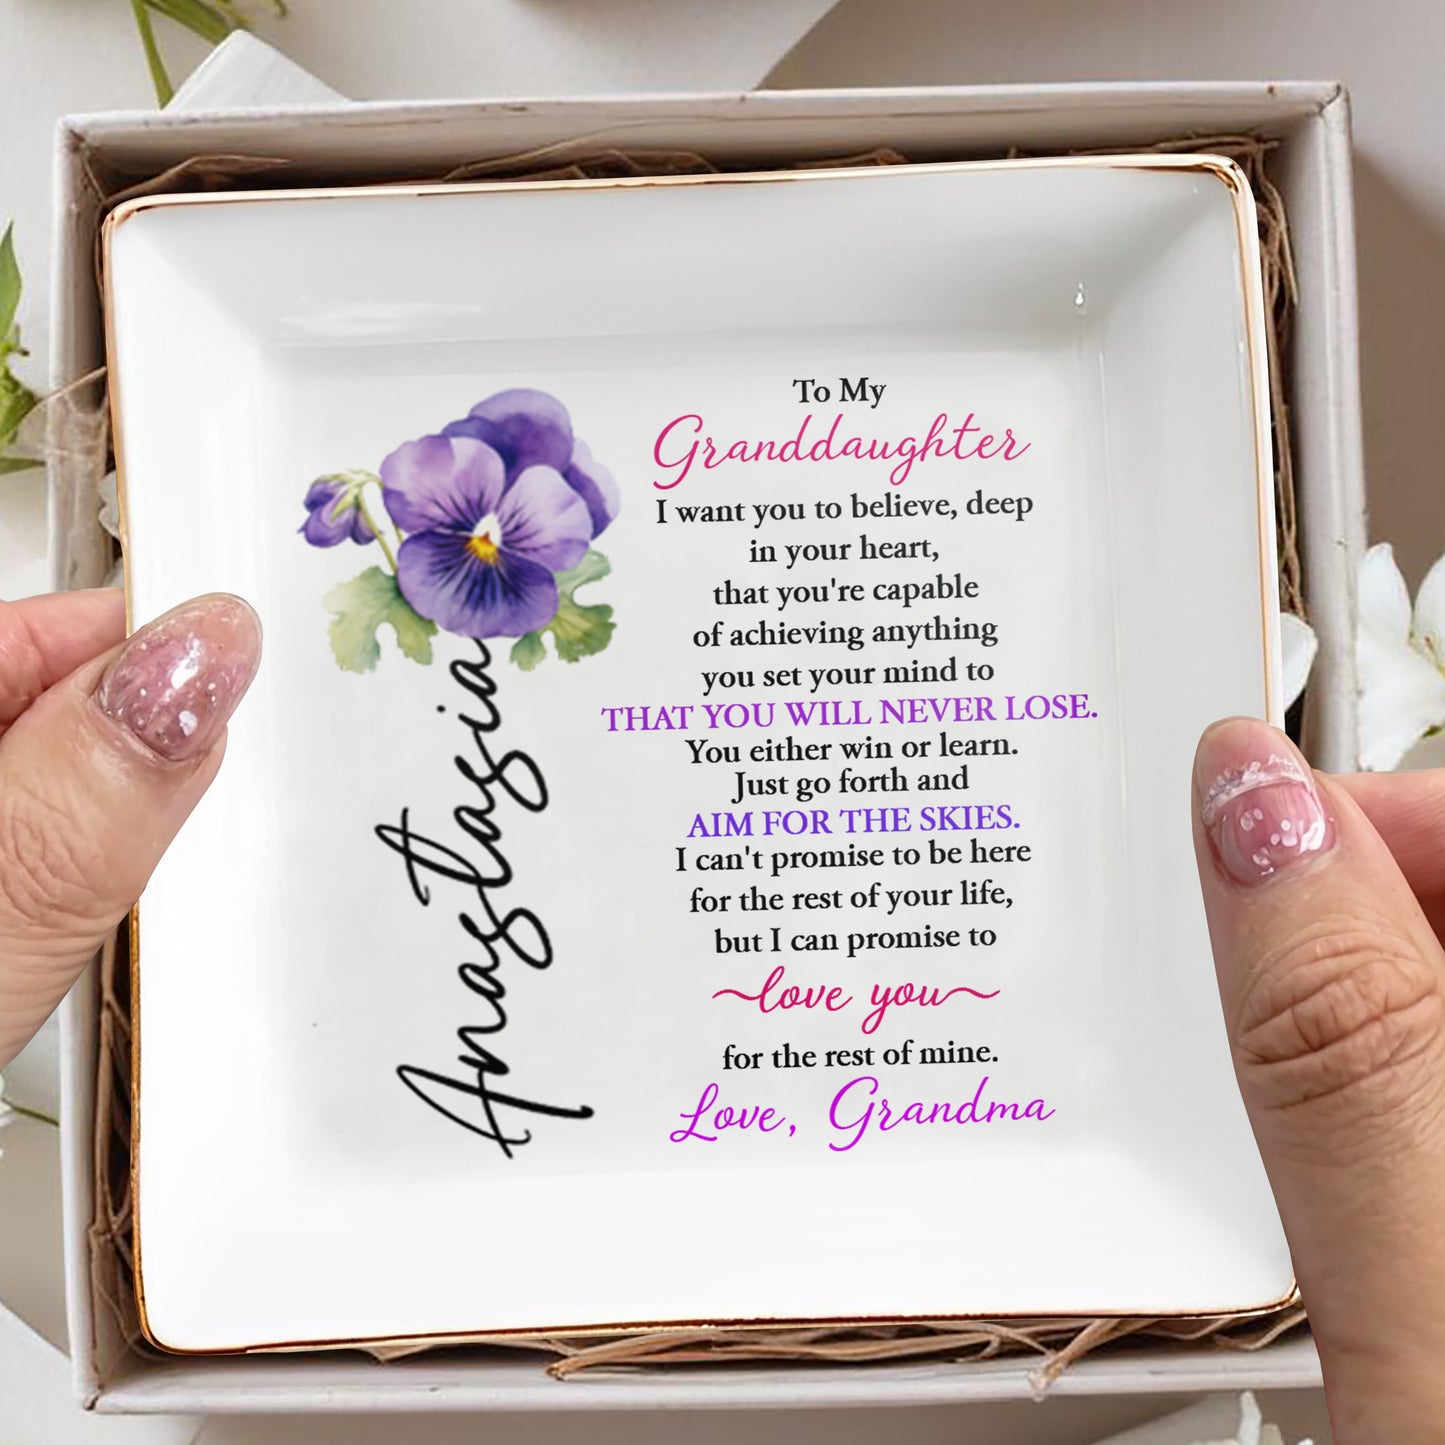 To My
Granddaughter
I want you to believe, deep
in your heart,
that you're capable
of achieving anything
you set your mind to
THAT YOU WILL NEVER LOSE.
You either win or learn.
Just go forth and
AIM FOR THE SKIES.
I can't promise to be here
for the rest of your life,
but I can promise to
love you
for the rest of mine.
Love, Grandma
Anastasia